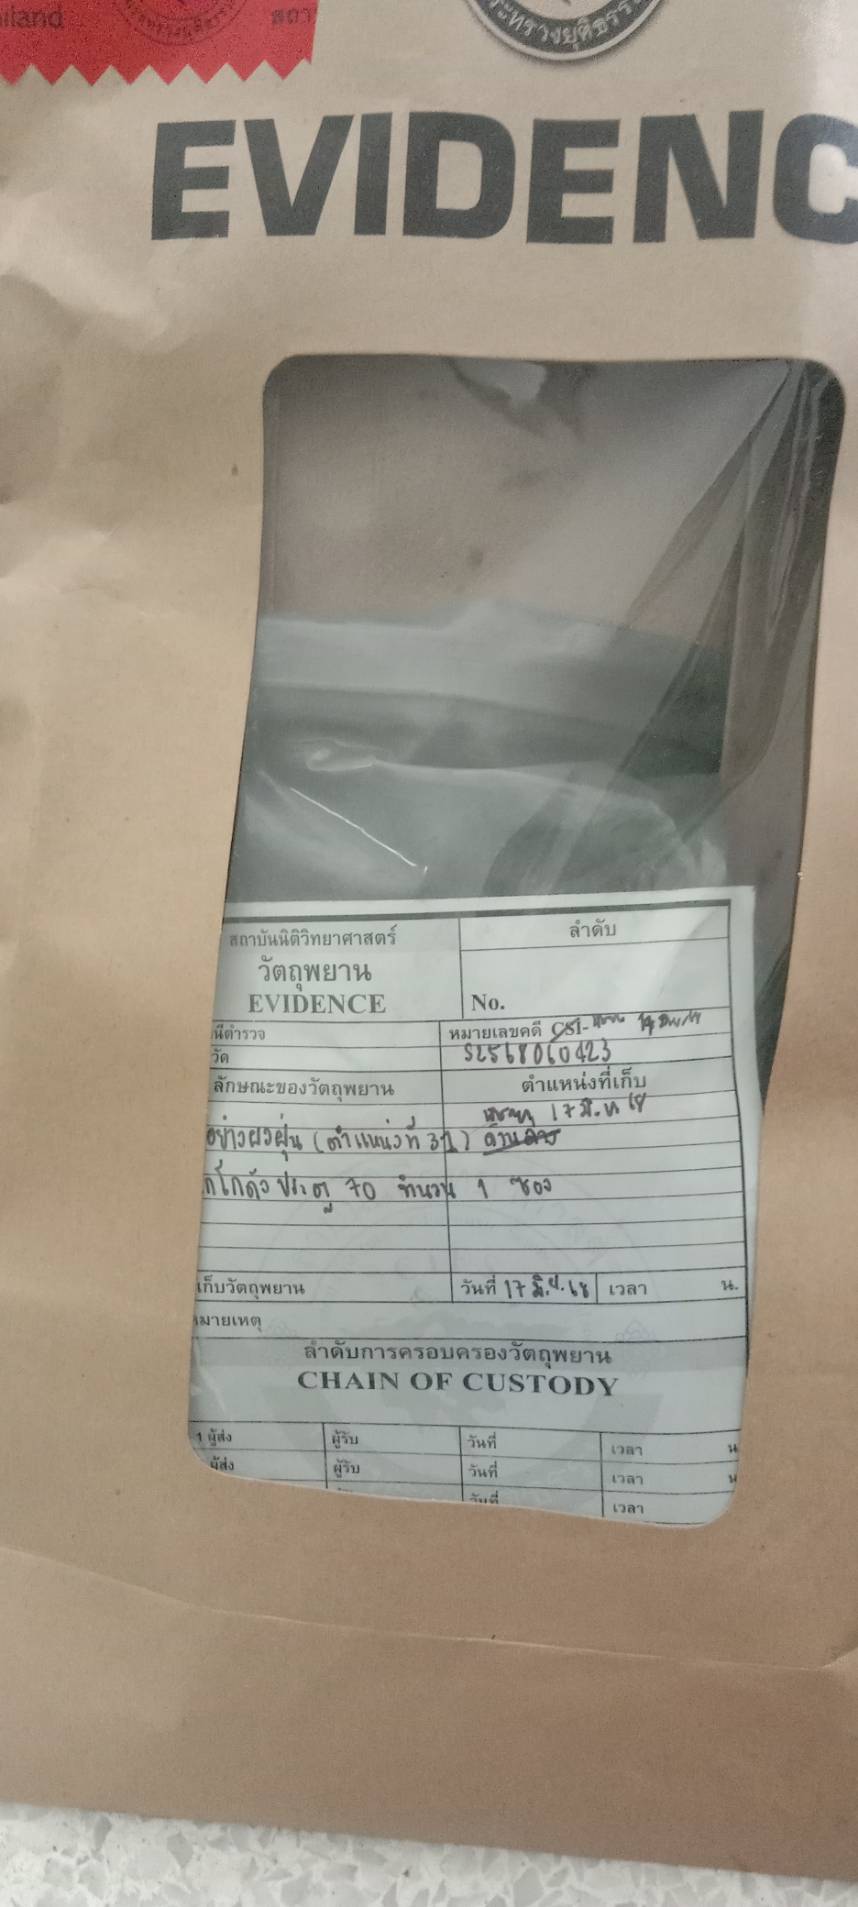 iland
สถา
กระทรวงยุติธรรม
EVIDENC
สถาบันนิติวิทยาศาสตร์
ลำดับ
วัตถุพยาน
EVIDENCE
No.
นีตำรวจ
หมายเลขคดี CSI-
วัด
SZ568060423
ลักษณะของวัตถุพยาน
ตำแหน่งที่เก็บ
17 มิ.ย 68
อย่างผงฝุ่น (ตำแหน่งที่ 31)
โกดัง ประตู 70 จำนวน 1 ซอง
เก็บวัตถุพยาน
วันที่ 17 มิ.ย. 68 เวลา น.
มายเหตุ
ลำดับการครอบครองวัตถุพยาน
CHAIN OF CUSTODY
1 ผู้ส่ง ผู้รับ วันที่ เวลา น
ผู้ส่ง ผู้รับ วันที่ เวลา น
วันที่ เวลา